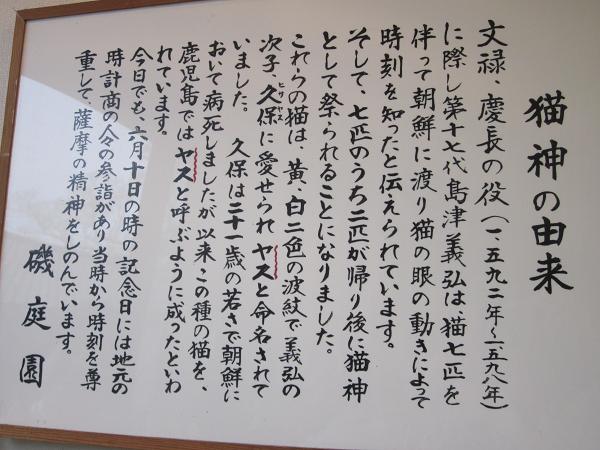 猫神の由来
文禄、慶長の役(一、五九二年〜一五九八年)
に際し第十七代島津義弘は猫七匹を
伴って朝鮮に渡り猫の眼の動きによって
時刻を知ったと伝えられています。
そして、七匹のうち二匹が帰り後に猫神
として祭られることになりました。
これらの猫は、黄、白二色の波紋で義弘の
次子、久保に愛せられヤスと命名されて
ヒサヤス
いました。 久保は二十一歳の若さで朝鮮に
おいて病死しましたが以来この種の猫を、
鹿児島ではヤスと呼ぶように成ったといわ
れています。
今日でも、六月十日の時の記念日には地元の
時計商の人々の参詣があり当時から時刻を尊
重して、薩摩の精神をしのんでいます。
磯庭園